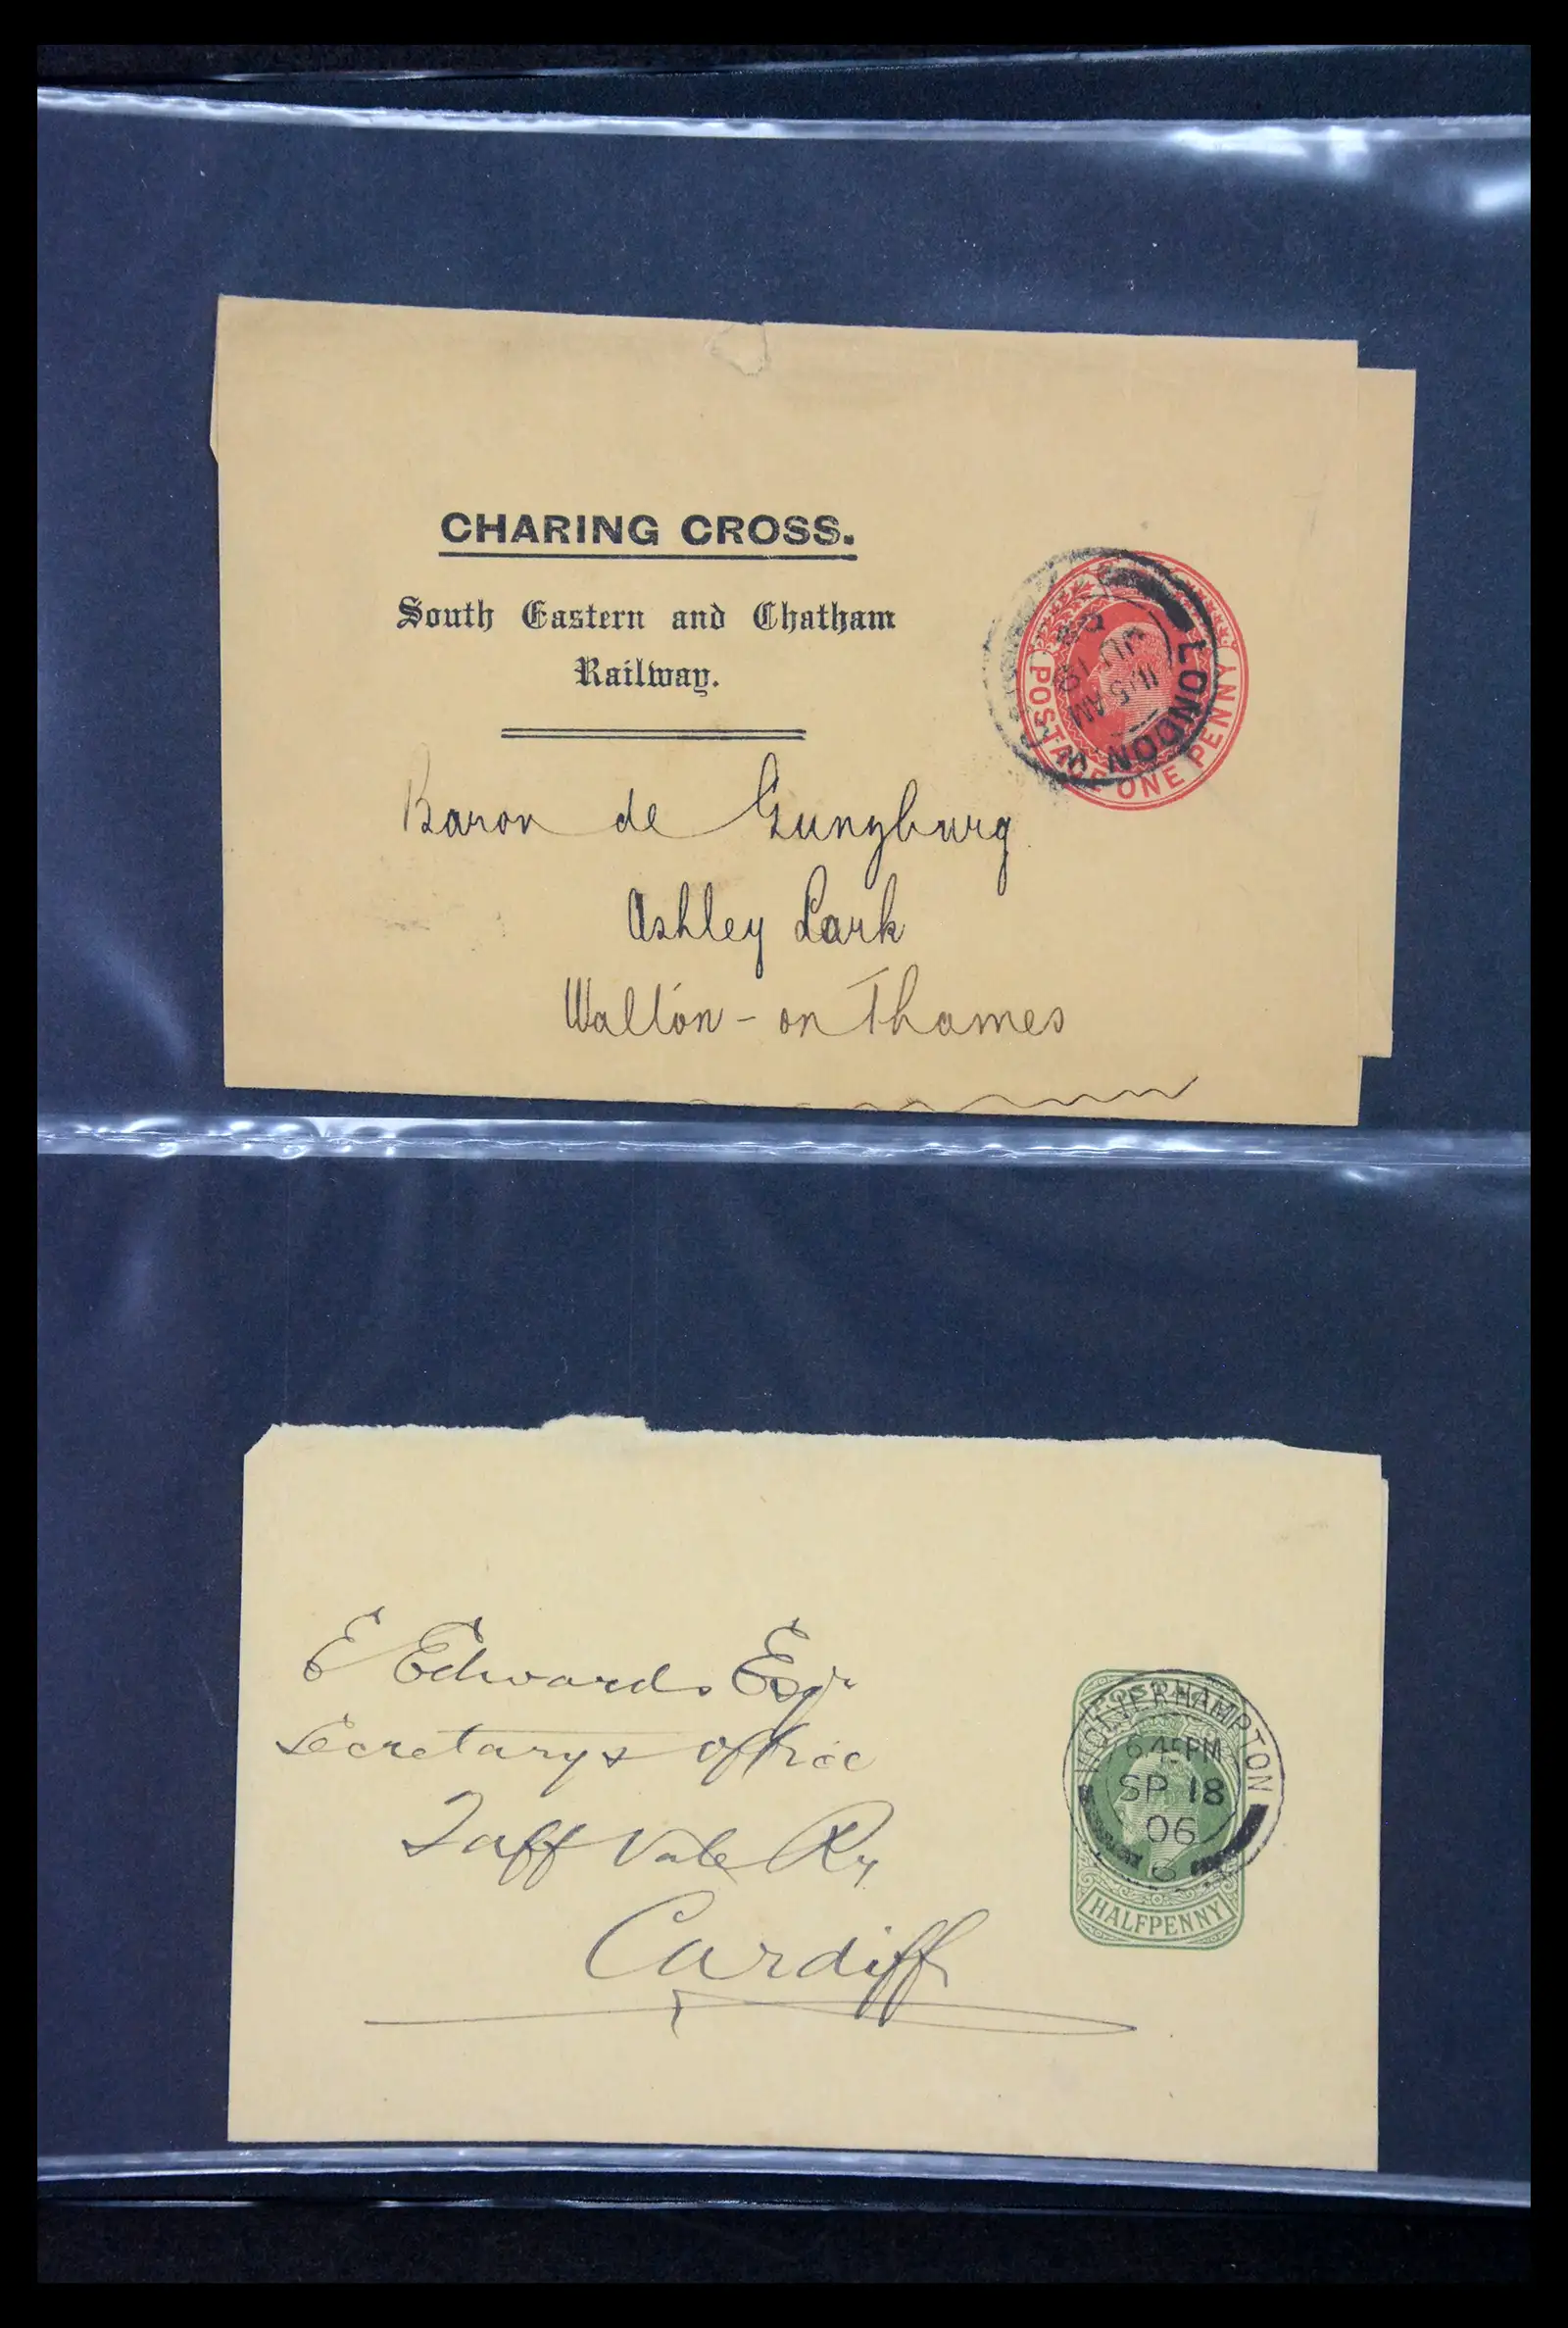 CHARING CROSS.
South Eastern and Chatham
Railway.
POSTAGE ONE PENNY
LONDON
11.15 AM
JU 19
Baron de Gunzburg
Ashley Park
Walton-on Thames
E Edwards Esqr
Secretarys office
Taff Vale Ry
Cardiff
WOLVERHAMPTON
6.45 PM
SP 18
06
6
HALFPENNY